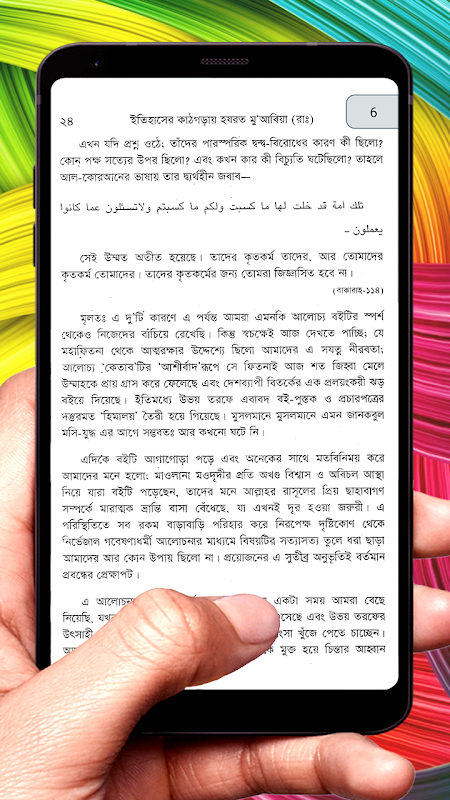 6
২৪ ইতিহাসের কাঠগড়ায় হযরত মু'আবিয়া (রাঃ)
এখন যদি প্রশ্ন ওঠে; তাঁদের পারস্পরিক দ্বন্দ্ব-বিরোধের কারণ কী ছিলো?
কোন্ পক্ষ সত্যের উপর ছিলো? এবং কখন কার কী বিচ্যুতি ঘটেছিলো? তাহলে
আল-কোরআনের ভাষায় তার দ্ব্যর্থহীন জবাব—
تلك امة قد خلت لها ما كسبت ولكم ما كسبتم ولاتسئلون عما كانوا
يعملون -
সেই উম্মত অতীত হয়েছে। তাদের কৃতকর্ম তাদের, আর তোমাদের
কৃতকর্ম তোমাদের। তাদের কৃতকর্মের জন্য তোমরা জিজ্ঞাসিত হবে না।
(বাকারাহ-১১৪)
মূলতঃ এ দু'টি কারণে এ পর্যন্ত আমরা এমনকি আলোচ্য বইটির স্পর্শ
থেকেও নিজেদের বাঁচিয়ে রেখেছি। কিন্তু স্বচক্ষেই আজ দেখতে পাচ্ছি; যে
মহাফিতনা থেকে আত্মরক্ষার উদ্দেশ্যে ছিলো আমাদের এ সযত্ন নীরবতা;
আলোচ্য 'কেতাব'টির 'আশীর্বাদ'রূপে সে ফিতনাই আজ শত জিহ্বা মেলে
উম্মাহকে প্রায় গ্রাস করে ফেলেছে এবং দেশব্যাপী বিতর্কের এক প্রলয়ংকরী ঝড়
বইয়ে দিয়েছে। ইতিমধ্যে উভয় তরফে এবাবদ বই-পুস্তক ও প্রচারপত্রের
দস্তুরমত 'হিমালয়' তৈরী হয়ে গিয়েছে। মুসলমানে মুসলমানে এমন জানকবুল
মসি-যুদ্ধ এর আগে সম্ভবতঃ আর কখনো ঘটে নি।
এদিকে বইটি আগাগোড়া পড়ে এবং অনেকের সাথে মতবিনিময় করে
আমাদের মনে হলো; মাওলানা মওদূদীর প্রতি অখণ্ড বিশ্বাস ও অবিচল আস্থা
নিয়ে যারা বইটি পড়েছেন, তাদের মনে আল্লাহর রাসূলের প্রিয় ছাহাবাগণ
সম্পর্কে মারাত্মক ভ্রান্তি বাসা বেঁধেছে, যা এখনই দূর হওয়া জরুরী। এ
পরিস্থিতিতে সব রকম বাড়াবাড়ি পরিহার করে নিরপেক্ষ দৃষ্টিকোণ থেকে
নির্ভেজাল গবেষণাধর্মী আলোচনার মাধ্যমে বিষয়টির সত্যাসত্য তুলে ধরা ছাড়া
আমাদের আর কোন উপায় ছিলো না। প্রয়োজনের এ সুতীব্র অনুভূতিই বর্তমান
প্রবন্ধের প্রেক্ষাপট।
এ আলোচনার একটা সময় আমরা বেছে
নিয়েছি, যখন এসেছে এবং উভয় তরফের
উৎসাহী খুঁজে পেতে চাচ্ছেন।
মুক্ত হয়ে চিন্তার আহ্বান